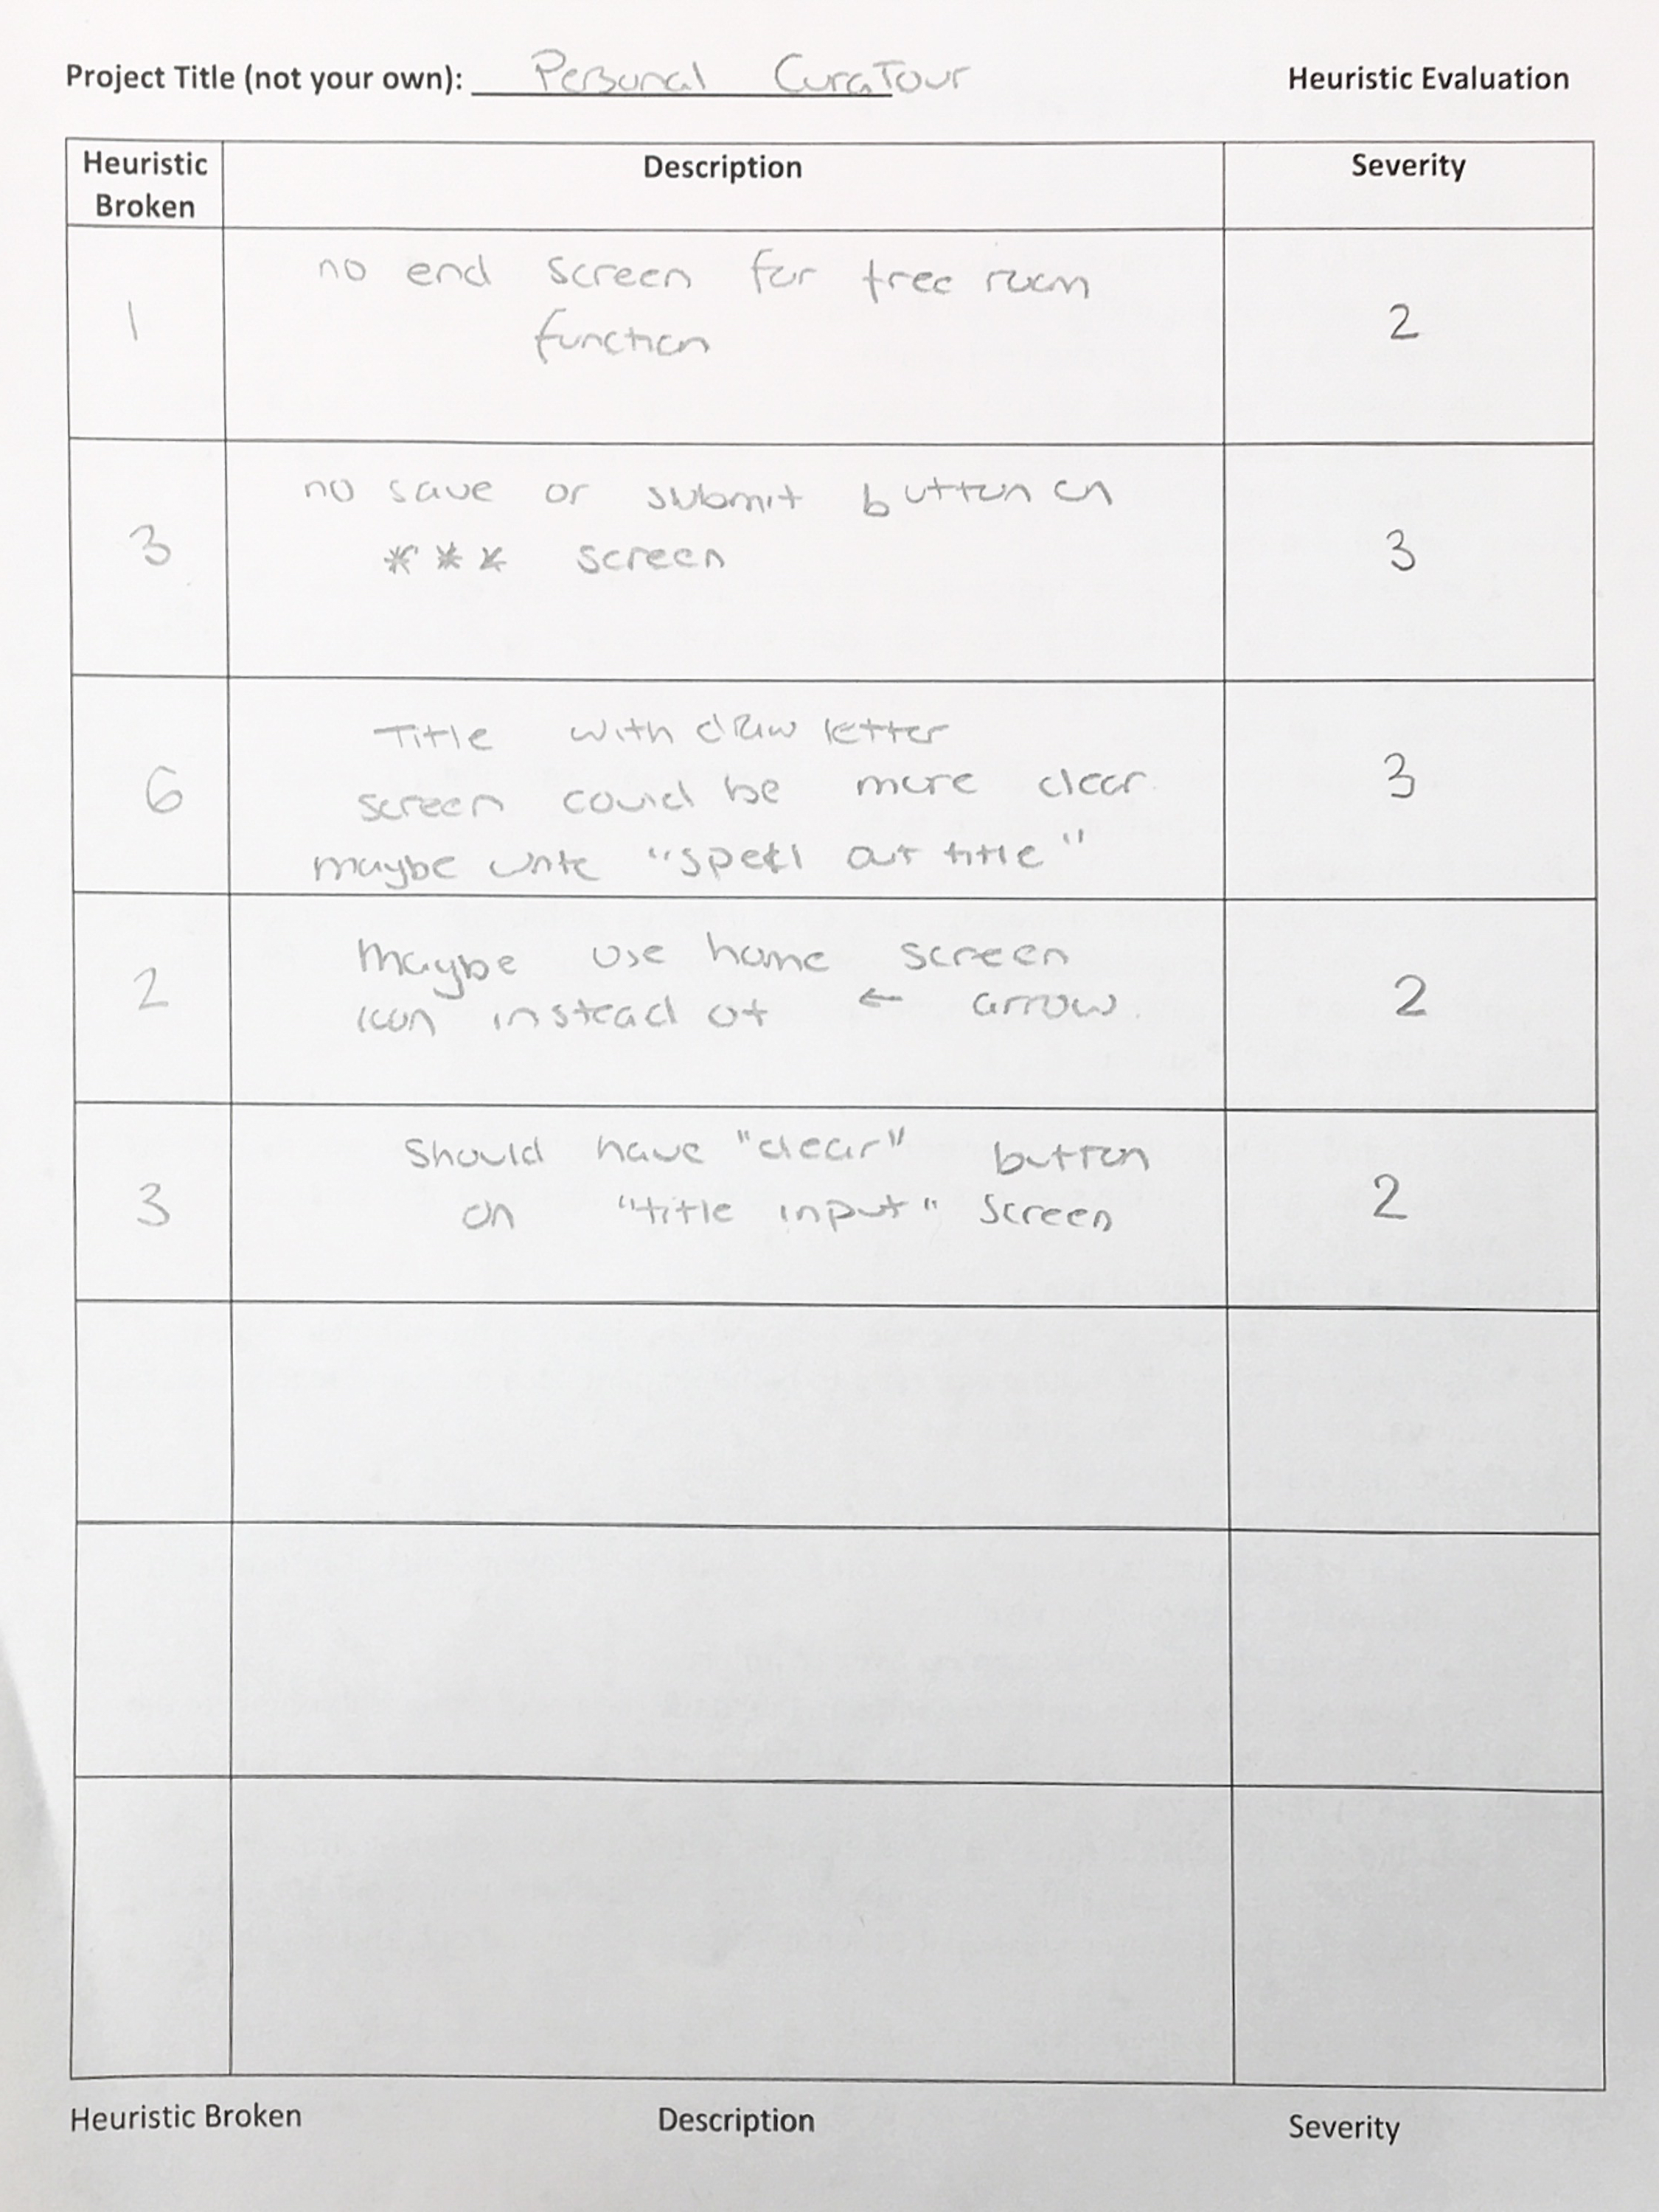 Project Title (not your own): Personal CuraTour
Heuristic Evaluation
Heuristic Broken
Description
Severity
1
no end screen for free roam
function
2
3
no save or submit button on
*** screen
3
6
Title with draw letter
screen could be more clear.
maybe write "spell out title"
3
2
Maybe use home screen
icon instead of ← arrow.
2
3
Should have "clear" button
on "title input" screen
2
Heuristic Broken
Description
Severity